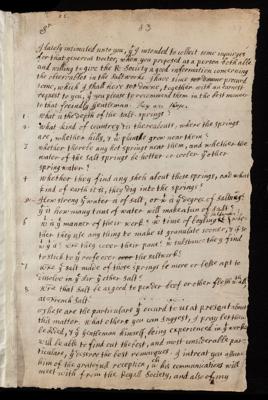 83
I lately intimated unto you, yt I intended to collect some inquiryes
for that generall doctor, whom you proposed as a person both able
and willing to give the R. Society a good information concerning
the observables in the saltworks. I have since drawne
some, which I shall here together with an earnest
request to you, yt you please to recommend them in the best manner
to that friendly Gentleman.
1 What is the depth of the salt-springs?
2 What kind of country 'tis thereabouts, where the springs
are, whether hilly, & wt plants grow near them?
3 whether there be any hot springs near them, and whether the
water of the salt springs be hotter or cooler yn other
spring water?
4 whether they find any shels about those springs, and what
kind of earth it is, they dig into the springs?
5 How strong ye water is of salt, or
yt is how many tuns of water will make a tun of salt?
6 manner of their work? & time of
ther they use any thing to make it granulate sooner, & if so
wt yt is? wt substance they find
to stick to ye
7 ye salt made of those springs be more or lesse apt to
dissolve in ye air yn other salt?
that salt be as good to powder beef or other flesh
as French salt
These are the particulars yt occurre to us at present about
this matter. what others you can suggest, I pray let them
be added, & ye Gentleman himself being experienced in ye works
will be able to find out the best, and most considerable par-
ticulars, I intreat you assure
him of the gratefull reception his communications will
meet with from the Royal Society, and also of my